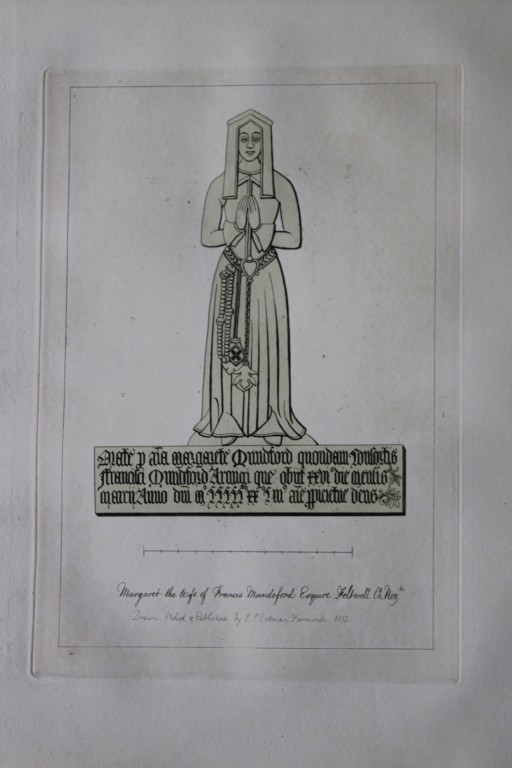 Orate p aīa margarete Mundford quondam consortis
Francisci Mundford Armigi que obiit xxvi° die mensis
marcii Anno dni m° aīe ppicietur deus
Margaret the wife of Francis Mundeford Esquire Feltwell Ch.
Drawn Etched & Published by J. S. Cotman Yarmouth